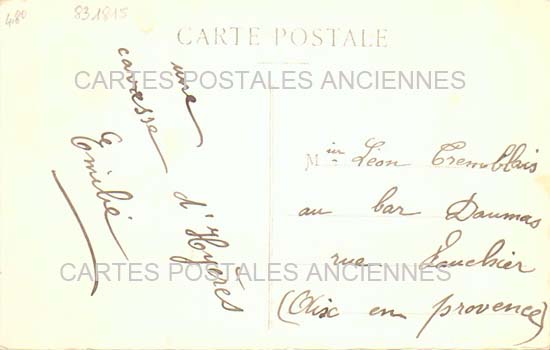 480
831815
CARTE POSTALE
CARTES POSTALES ANCIENNES
une
caresse
d'Hyères
Emilie
Mier Léon Tremblais
au bar Daumas
rue
(Aix en provence)
CARTES POSTALES ANCIENNES